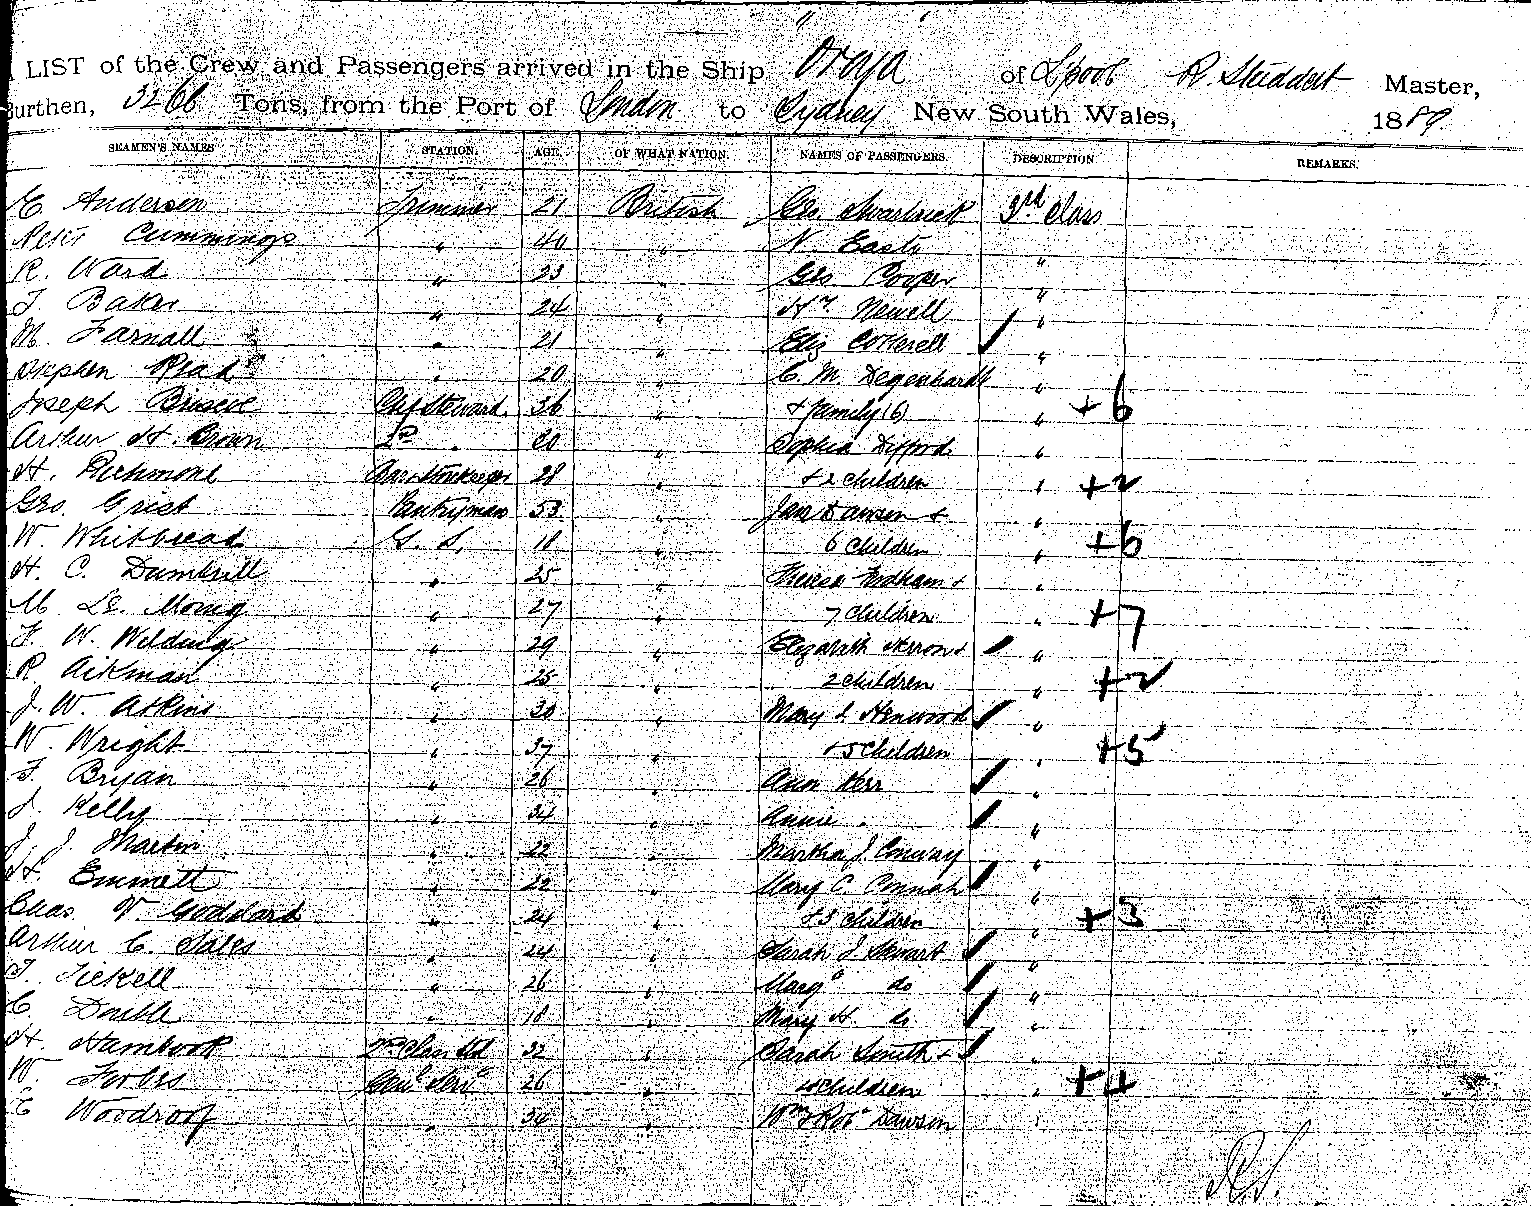 LIST of the Crew and Passengers arrived in the Ship "Oroya" of L'pool R. Studdert Master,
Burthen, 3266 Tons, from the Port of London to Sydney New South Wales, 1889
SEAMEN'S NAMES STATION. AGE. OF WHAT NATION. NAMES OF PASSENGERS. DESCRIPTION REMARKS.
E. Andersen Trimmer 21 British Geo Swarbrick 3rd Class
Peter Cummings " 40 " N. Easty "
R. Ward " 23 " Geo Cooper "
T Baker " 24 " Hy. Newell "
M. Farnall " 21 " Eliz Cotterell "
Stephen Read " 20 " C. M. Degenhardt "
Joseph Briscoe Chf Steward 36 " + family (6) " +6
Arthur H. Brown 2nd " 30 " Sophia Difford "
H. Richmond Storekeeper 28 " + 2 children " +2
Geo. Grist Pantryman 53 " Jane Dawson + "
W. Whitbread G. S. 18 " 6 children " +6
H. C. Dumbrill " 25 " Theresa + "
M. De. " 27 " 7 children " +7
F. W. Wilding " 29 " Elizabeth Herron + "
R. Aikman " 25 " 2 children " +2
J. W. Atkins " 30 " Mary J. Henwood "
W. Wright " 37 " + 5 children " +5
F. Bryan " 26 " Ann Kerr "
J. Kelly " 34 " Annie " "
J. J. Martin " 22 " Martha J. Conway "
H. Emmett " 22 " Mary C. Connah "
Chas. W. Goddard " 24 " + 3 children " +3
Arthur C. Sales " 24 " Sarah J. Stewart "
T. Tickell " 26 " Margt do "
C. Double " 18 " Mary H. do "
H. Hambrook 2nd Class Std 32 " Sarah Smith + "
W. Forbes Genl Servt 26 " 4 children " +4
E Woodroof " 34 " Wm & Robt Dawson "
R.S.